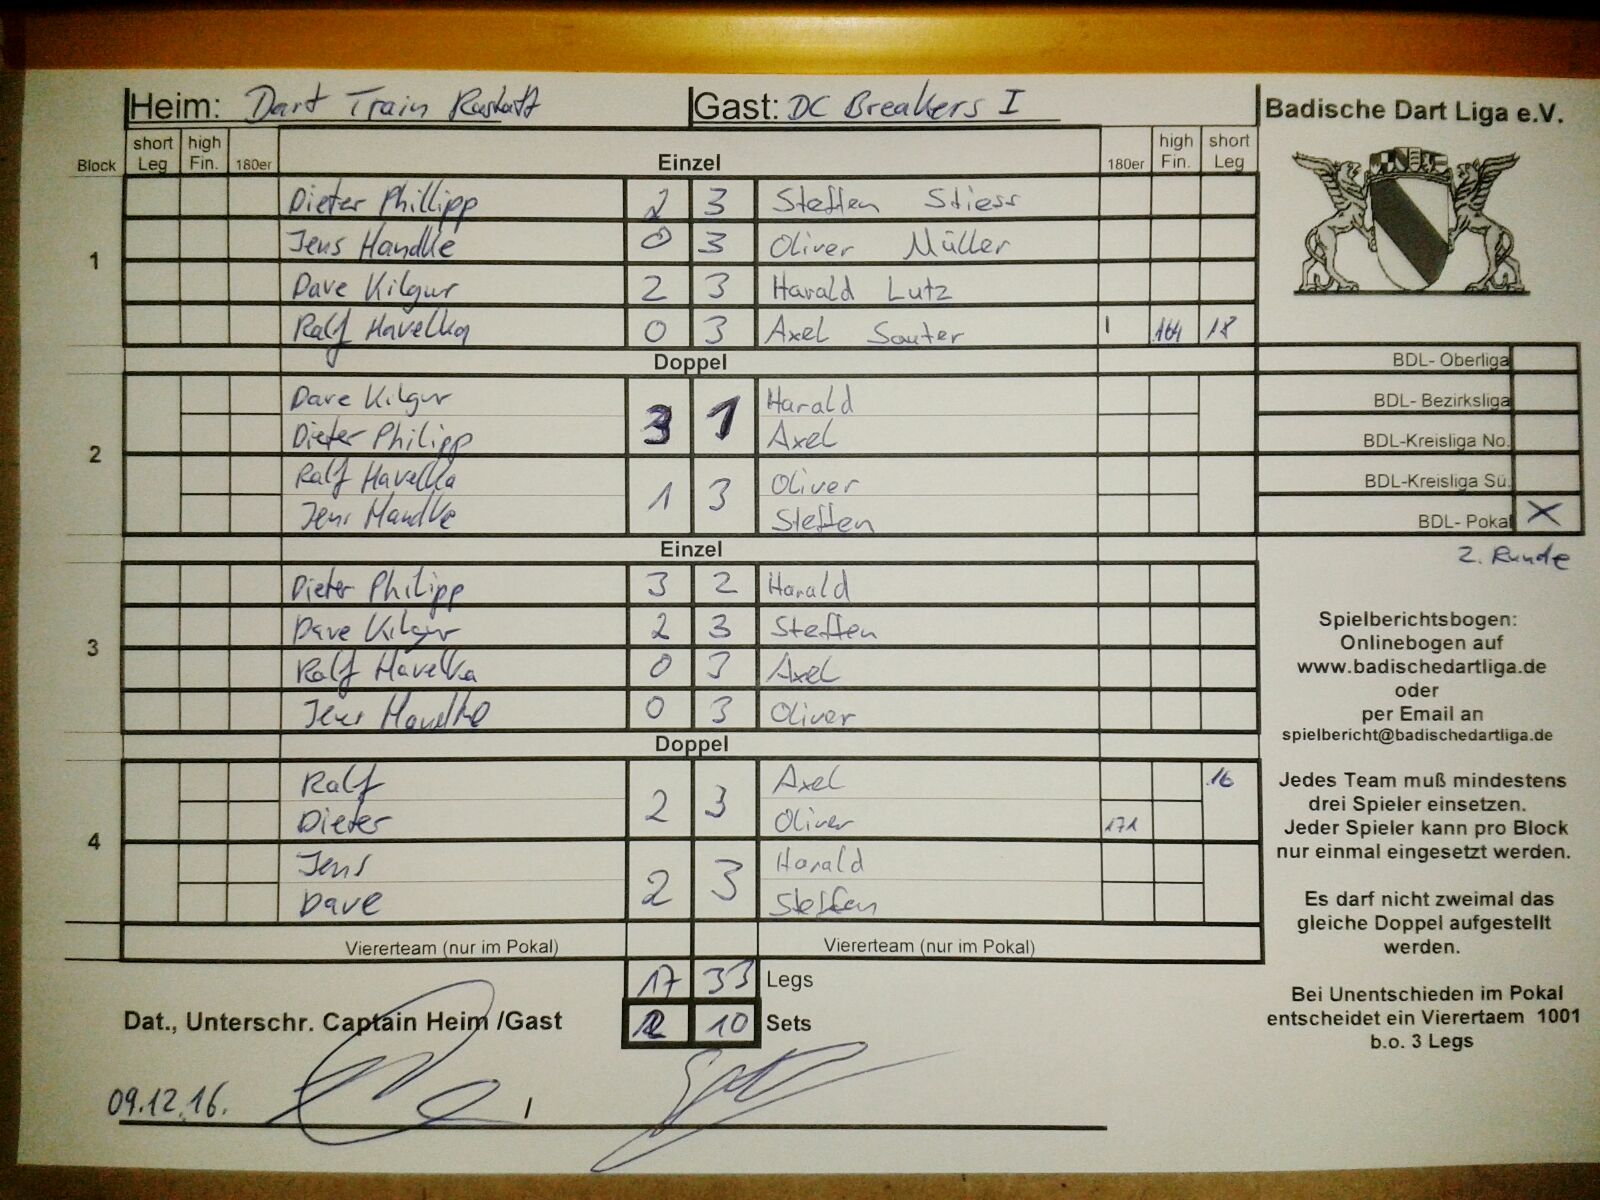 Heim: Dart Train Rastatt Gast: DC Breakers I Badische Dart Liga e.V.
Block short Leg high Fin. 180er Einzel 180er high Fin. short Leg
1
Dieter Phillipp 2 3 Steffen Stiess
Jens Handke 0 3 Oliver Müller
Dave Kilgur 2 3 Harald Lutz
Ralf Havelka 0 3 Axel Sauter 1 164 18
Doppel
2
Dave Kilgur 3 1 Harald
Dieter Philipp Axel
Ralf Havelka 1 3 Oliver
Jens Handke Steffen
Einzel
3
Dieter Philipp 3 2 Harald
Dave Kilgur 2 3 Steffen
Ralf Havelka 0 3 Axel
Jens Handke 0 3 Oliver
Doppel
4
Ralf 2 3 Axel 16
Dieter Oliver 171
Jens 2 3 Harald
Dave Steffen
Vierterteam (nur im Pokal) Vierterteam (nur im Pokal)
17 33 Legs
Dat., Unterschr. Captain Heim /Gast 2 10 Sets
09.12.16. /
BDL- Oberliga
BDL- Bezirksliga
BDL-Kreisliga No.
BDL-Kreisliga Sü.
BDL- Pokal X
2. Runde
Spielberichtsbogen:
Onlinebogen auf
www.badischedartliga.de
oder
per Email an
spielbericht@badischedartliga.de
Jedes Team muß mindestens
drei Spieler einsetzen.
Jeder Spieler kann pro Block
nur einmal eingesetzt werden.
Es darf nicht zweimal das
gleiche Doppel aufgestellt
werden.
Bei Unentschieden im Pokal
entscheidet ein Vierertaem 1001
b.o. 3 Legs